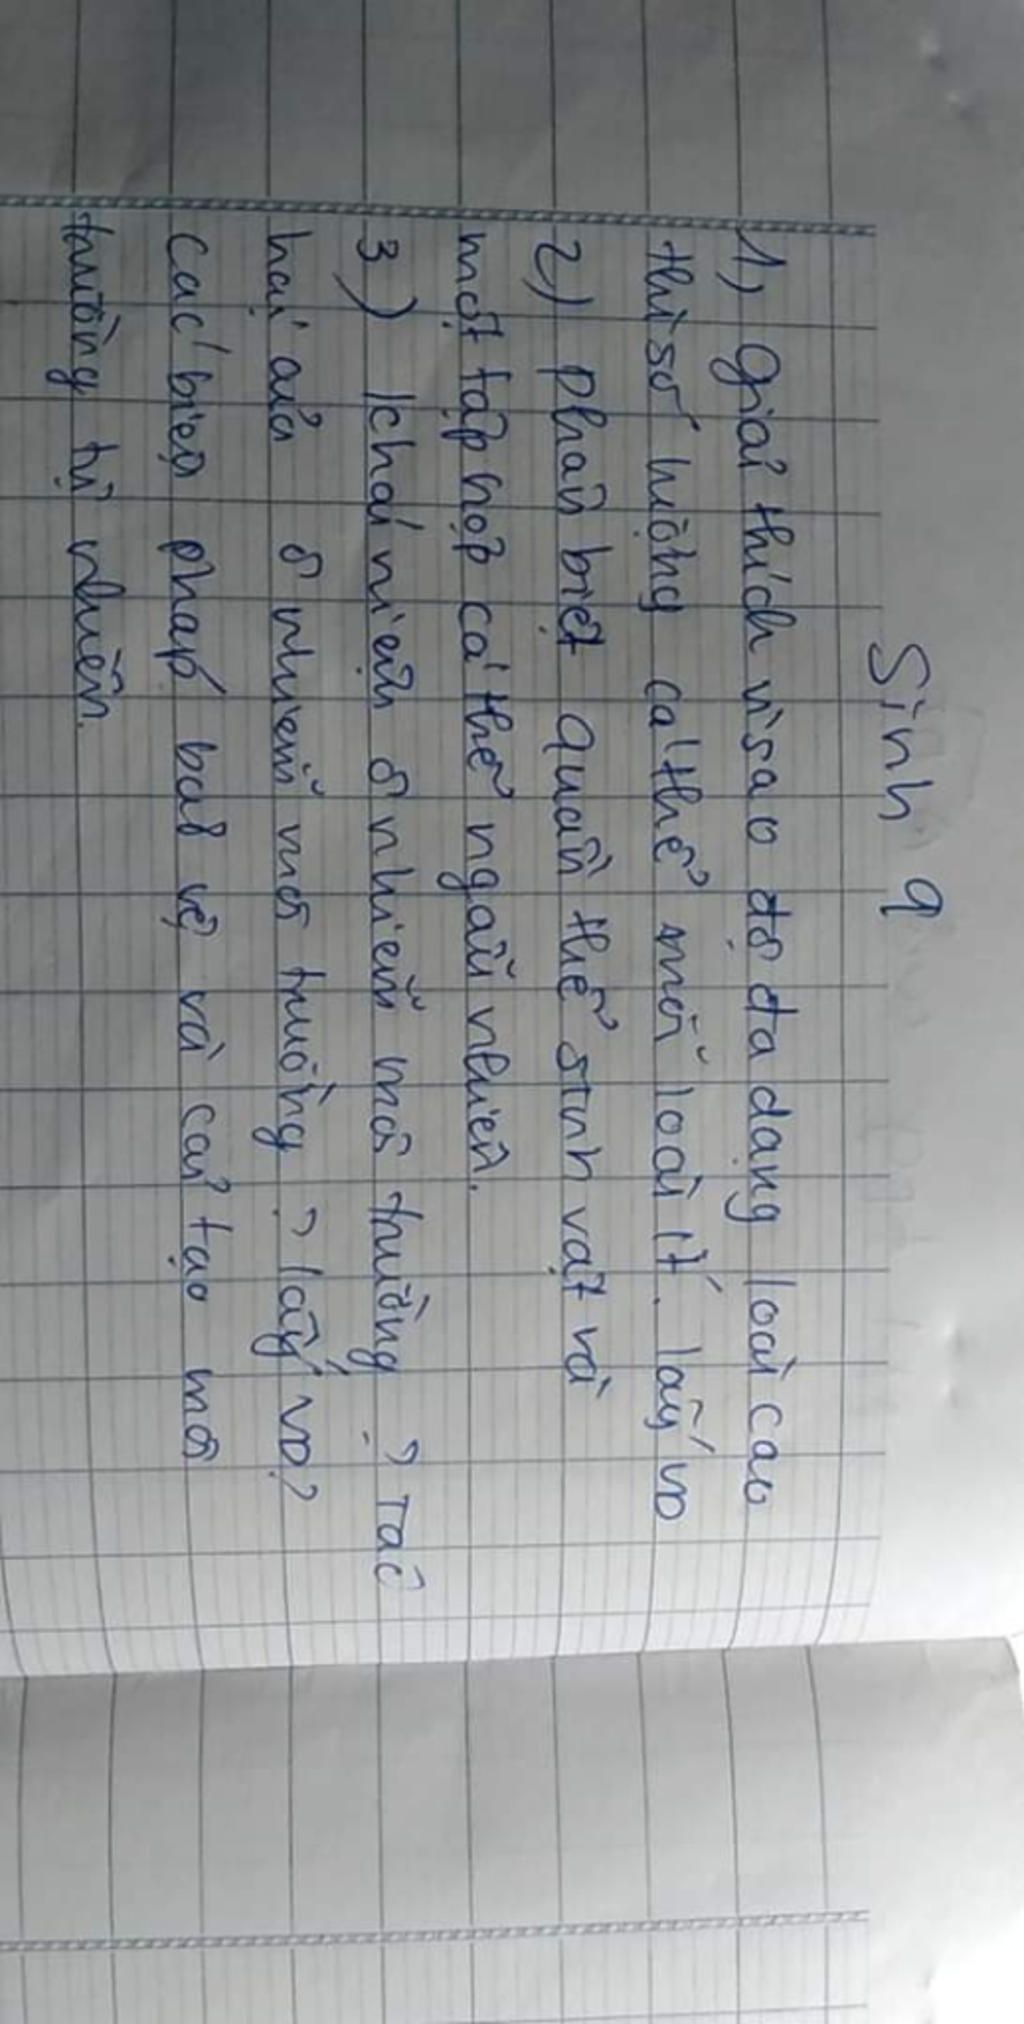 Sinh 9
1) Giải thích vì sao độ đa dạng loài cao
thì số lượng cá thể mỗi loài ít. lấy VD
2) phân biệt quần thể sinh vật và
một tập hợp cá thể ngẫu nhiên.
3) khái niệm ô nhiễm môi trường ? Tác
hại của ô nhiễm môi trường ? lấy VD?
các biện pháp bảo vệ và cải tạo môi
trường tự nhiên.